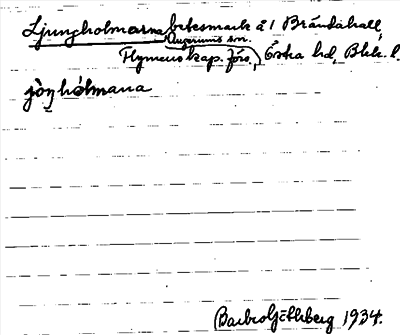 Ljungholmarna betesmark å 1 Brändahall,
Augerums sn.
Flymens kap. förs., Östra hd, Blek. l.
jòŋhólmana
Barbro Göthberg 1934.